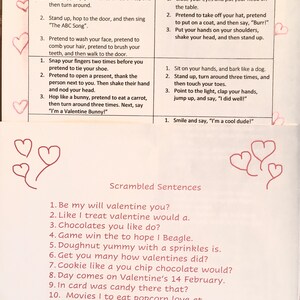 then turn around.
2. Stand up, hop to the door, and then sing
"The ABC Song".
3. Pretend to wash your face, pretend to
comb your hair, pretend to brush your
teeth, and then walk to the door.
the table.
2. Pretend to take off your hat, pretend
to put on a coat, and then say, "Burr!"
3. Put your hands on your shoulders,
shake your head, and then stand up.
1. Snap your fingers two times before you
pretend to tie your shoe.
2. Pretend to open a present, thank the
person next to you. Then shake their hand
and nod your head.
3. Hop like a bunny, pretend to eat a carrot,
then turn around three times. Next, say
"I'm a Valentine Bunny!"
1. Sit on your hands, and bark like a dog.
2. Stand up, turn around three times, and
then touch your toes.
3. Point to the light, clap your hands,
jump up, and say, "I did well!"
1. Smile and say, "I'm a cool dude!"
Scrambled Sentences
1. Be my will valentine you?
2. Like I treat valentine would a.
3. Chocolates you like do?
4. Game win the to hope I Beagle.
5. Doughnut yummy with a sprinkles is.
6. Get you many how valentines did?
7. Cookie like a you chip chocolate would?
8. Day comes on Valentine's 14 February.
9. In card was candy there that?
10. Movies I to eat popcorn love at